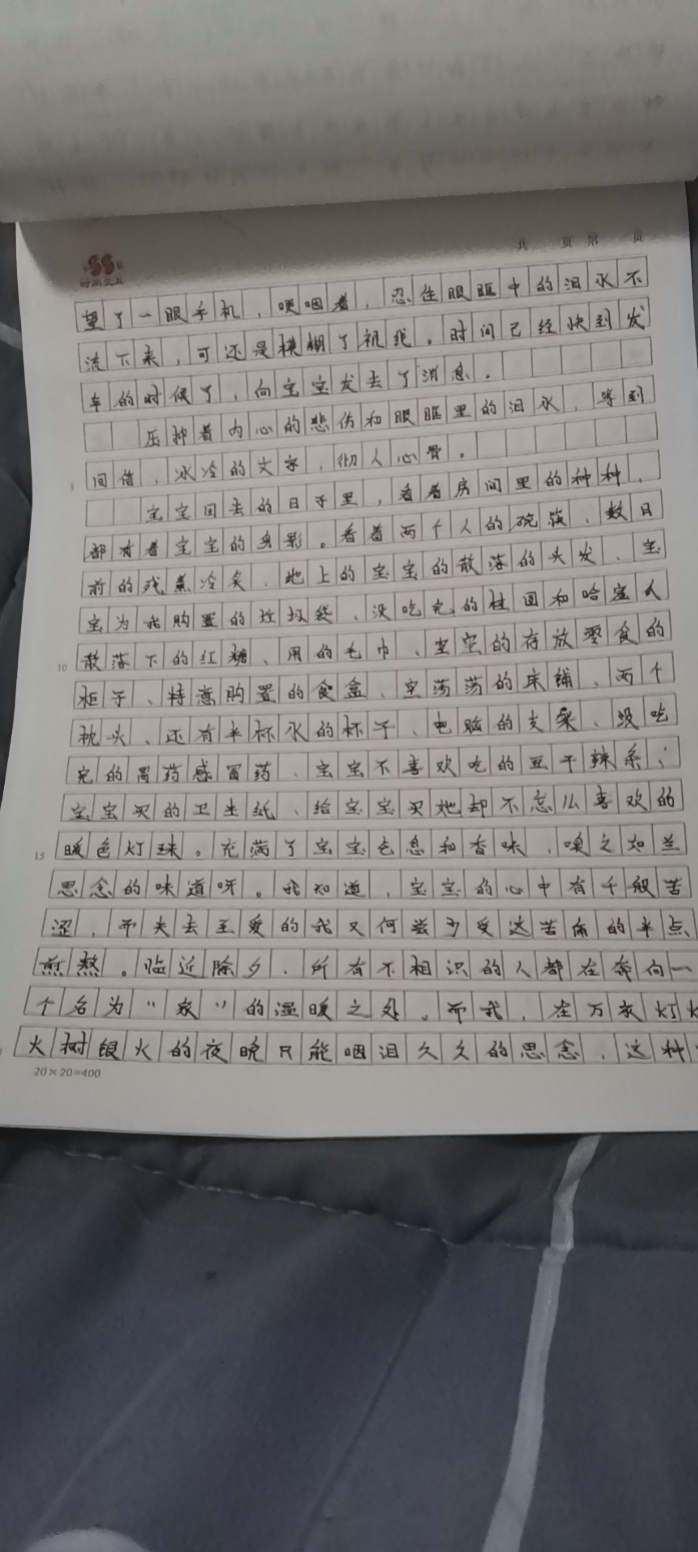 时尚文具
共 页 第 页
望了一眼手机，哽咽着，忍住眼眶中的泪水不
流下来，可还是模糊了视线。时间已经快到发
车的时候了，向宝宝发去了消息。
压抑着内心的悲伤和眼眶里的泪水，等到
回信，冰冷的文字，彻人心骨。
5
宝宝回去的日子里，看着房间里的种种，
都有着宝宝的身影。看着两个人的碗筷、数日
前的残羹冷炙、地上的宝宝的散落的头发、宝
宝为我购置的垃圾袋、没吃完的桂圆和哈宝人
散落下的红糖、用的毛巾、空空的存放零食的
10
柜子、特意购置的食盒、空荡荡的床铺、两个
枕头、还有半杯水的杯子、电脑的支架、没吃
完的胃药感冒药、宝宝不喜欢吃的豆干辣条；
宝宝买的卫生纸、给宝宝买她却不怎么喜欢的
暖色灯球。充满了宝宝气息和香味，嗅之如兰
15
思念的味道呀。我知道，宝宝的心中有千般苦
涩，而失去至爱的我又何尝少受这苦痛的半点
煎熬。临近除夕，所有不相识的人都在奔向一
个名为“家”的温暖之处。而我，在万家灯火
火树银火的夜晚只能咽泪久久的思念，这种
20×20=400